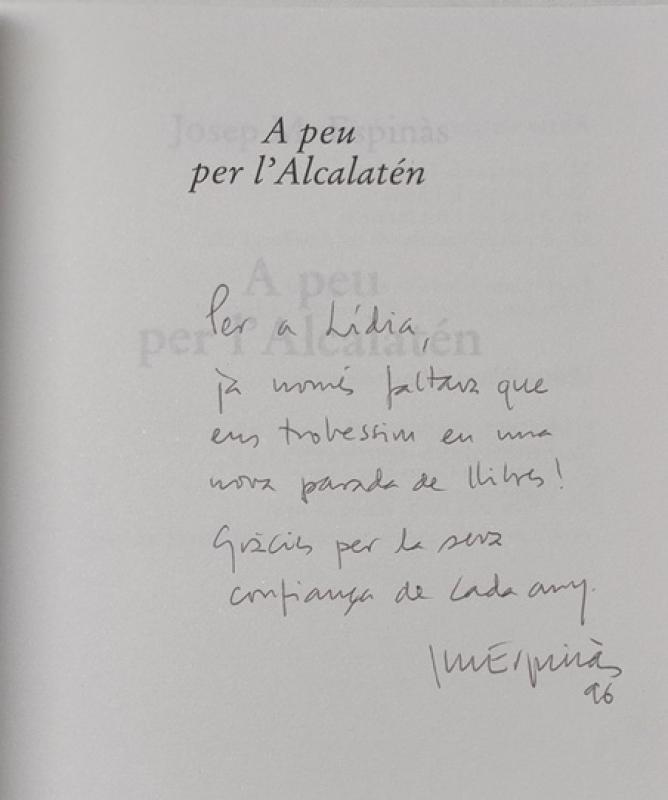 A peu
per l'Alcalatén
Per a Lídia,
ja només faltava que
ens trobessim en una
nova parada de llibres!
Gràcies per la seva
confiança de cada any.
JMEspinàs
96